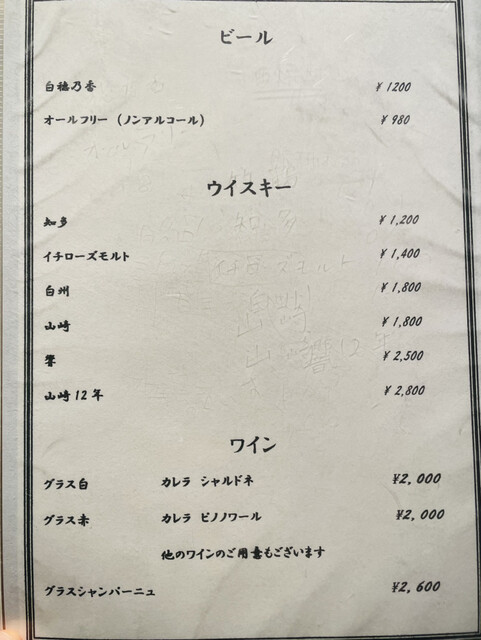 ビール
白穂乃香 ¥1200
オールフリー（ノンアルコール） ¥980
ウイスキー
知多 ¥1,200
イチローズモルト ¥1,400
白州 ¥1,800
山崎 ¥1,800
響 ¥2,500
山崎12年 ¥2,800
ワイン
グラス白 カレラ シャルドネ ¥2,000
グラス赤 カレラ ピノノワール ¥2,000
他のワインのご用意もございます
グラスシャンパーニュ ¥2,600